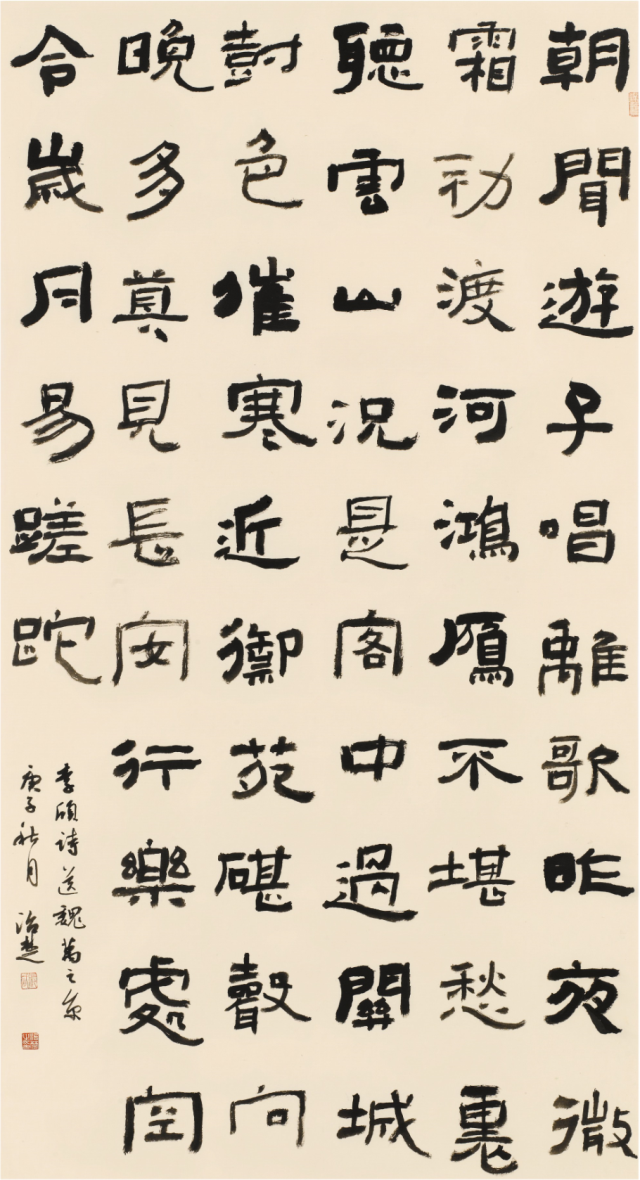 朝聞遊子唱離歌昨夜微
霜初渡河鴻鴈不堪愁裏
聽雲山況是客中過關城
樹色催寒近御苑碪聲向
晚多莫見長安行樂處空
令歲月易蹉跎
李頎詩送魏萬之京
庚子秋月